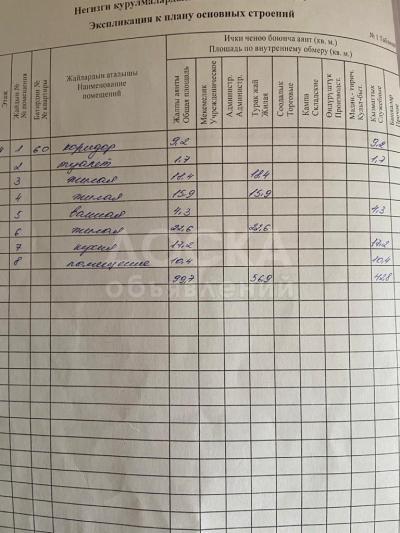 Негизги курулмалардын
Экспликация к плану основных строений
Ички ченөө боюнча аянт (кв. м.)
Площадь по внутреннему обмеру (кв. м.)
№ 1 Таблица
Этаж
Жайдын №
№ помещения
Батирдин №
№ квартиры
Жайлардын аталышы
Наименование
помещений
Жалпы аянты
Общая площадь
Мекемелик
Учрежденическое
Администр.
Администр.
Турак жай
Жилая
Соодалык
Торговые
Кампа
Складские
Өндүрүштүк
Производст.
Кызматтык
Служебные
Башкалар
Прочие
4 1 60 коридор 9,2 9,2
2 туалет 1,7 1,7
3 жилая 18,4 18,4
4 жилая 15,9 15,9
5 ванная 4,3 4,3
6 жилая 22,6 22,6
7 кухня 17,2 17,2
8 помещение 10,4 10,4
99,7 56,9 42,8
ДОСКА
объявлений